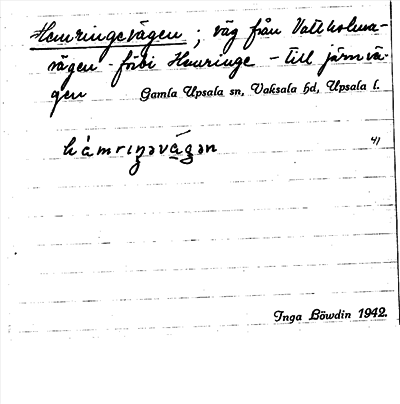 Hemringevägen ; väg från Vattholma-
vägen - förbi Hemringe - till järnvä-
gen Gamla Upsala sn, Vaksala hd, Upsala l.
hámrıŋəvá̱gən 41
Inga Böwdin 1942.